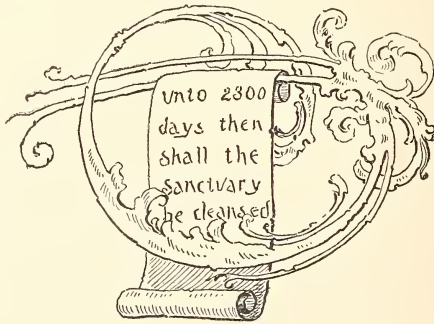 Unto 2300
days then
shall the
sanctuary
be cleansed